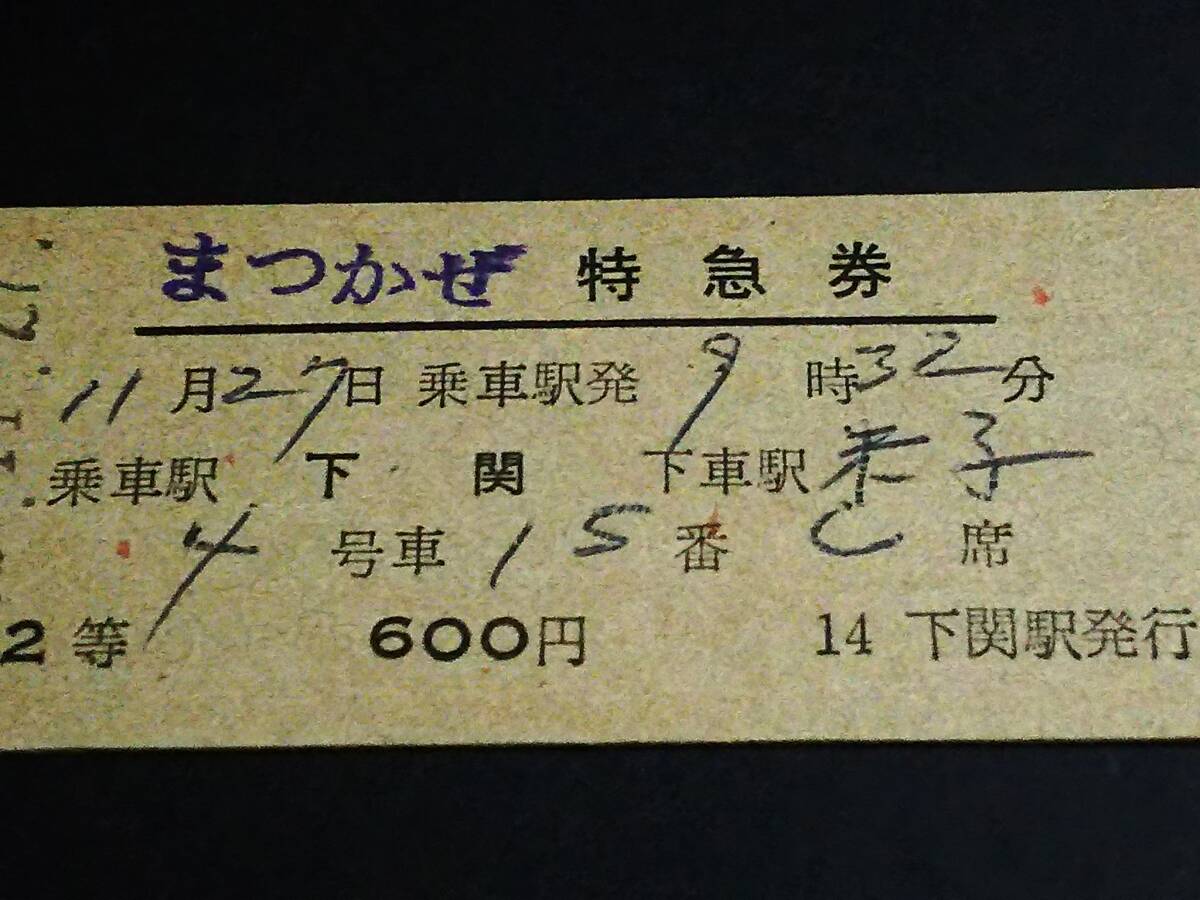 まつかぜ 特急券
11月27日 乗車駅発 9時32分
乗車駅 下関 下車駅 米子
4号車 15番 C席
2等 600円 14 下関駅発行